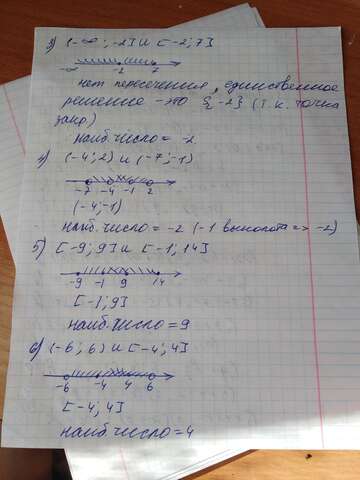 3) (-∞; -2] и [-2; 7]
-∞ -2 7
нет пересечения, единственное
решение - это {-2} (т.к. точка
закр.)
наиб. число = -2
4) (-4; 2) и (-7; -1)
-7 -4 -1 2
(-4; -1)
наиб. число = -2 (-1 выколота => -2)
5) [-9; 9] и [-1; 14]
-9 -1 9 14
[-1; 9]
наиб. число = 9
6) (-6; 6) и [-4; 4]
-6 -4 4 6
[-4; 4]
наиб. число = 4